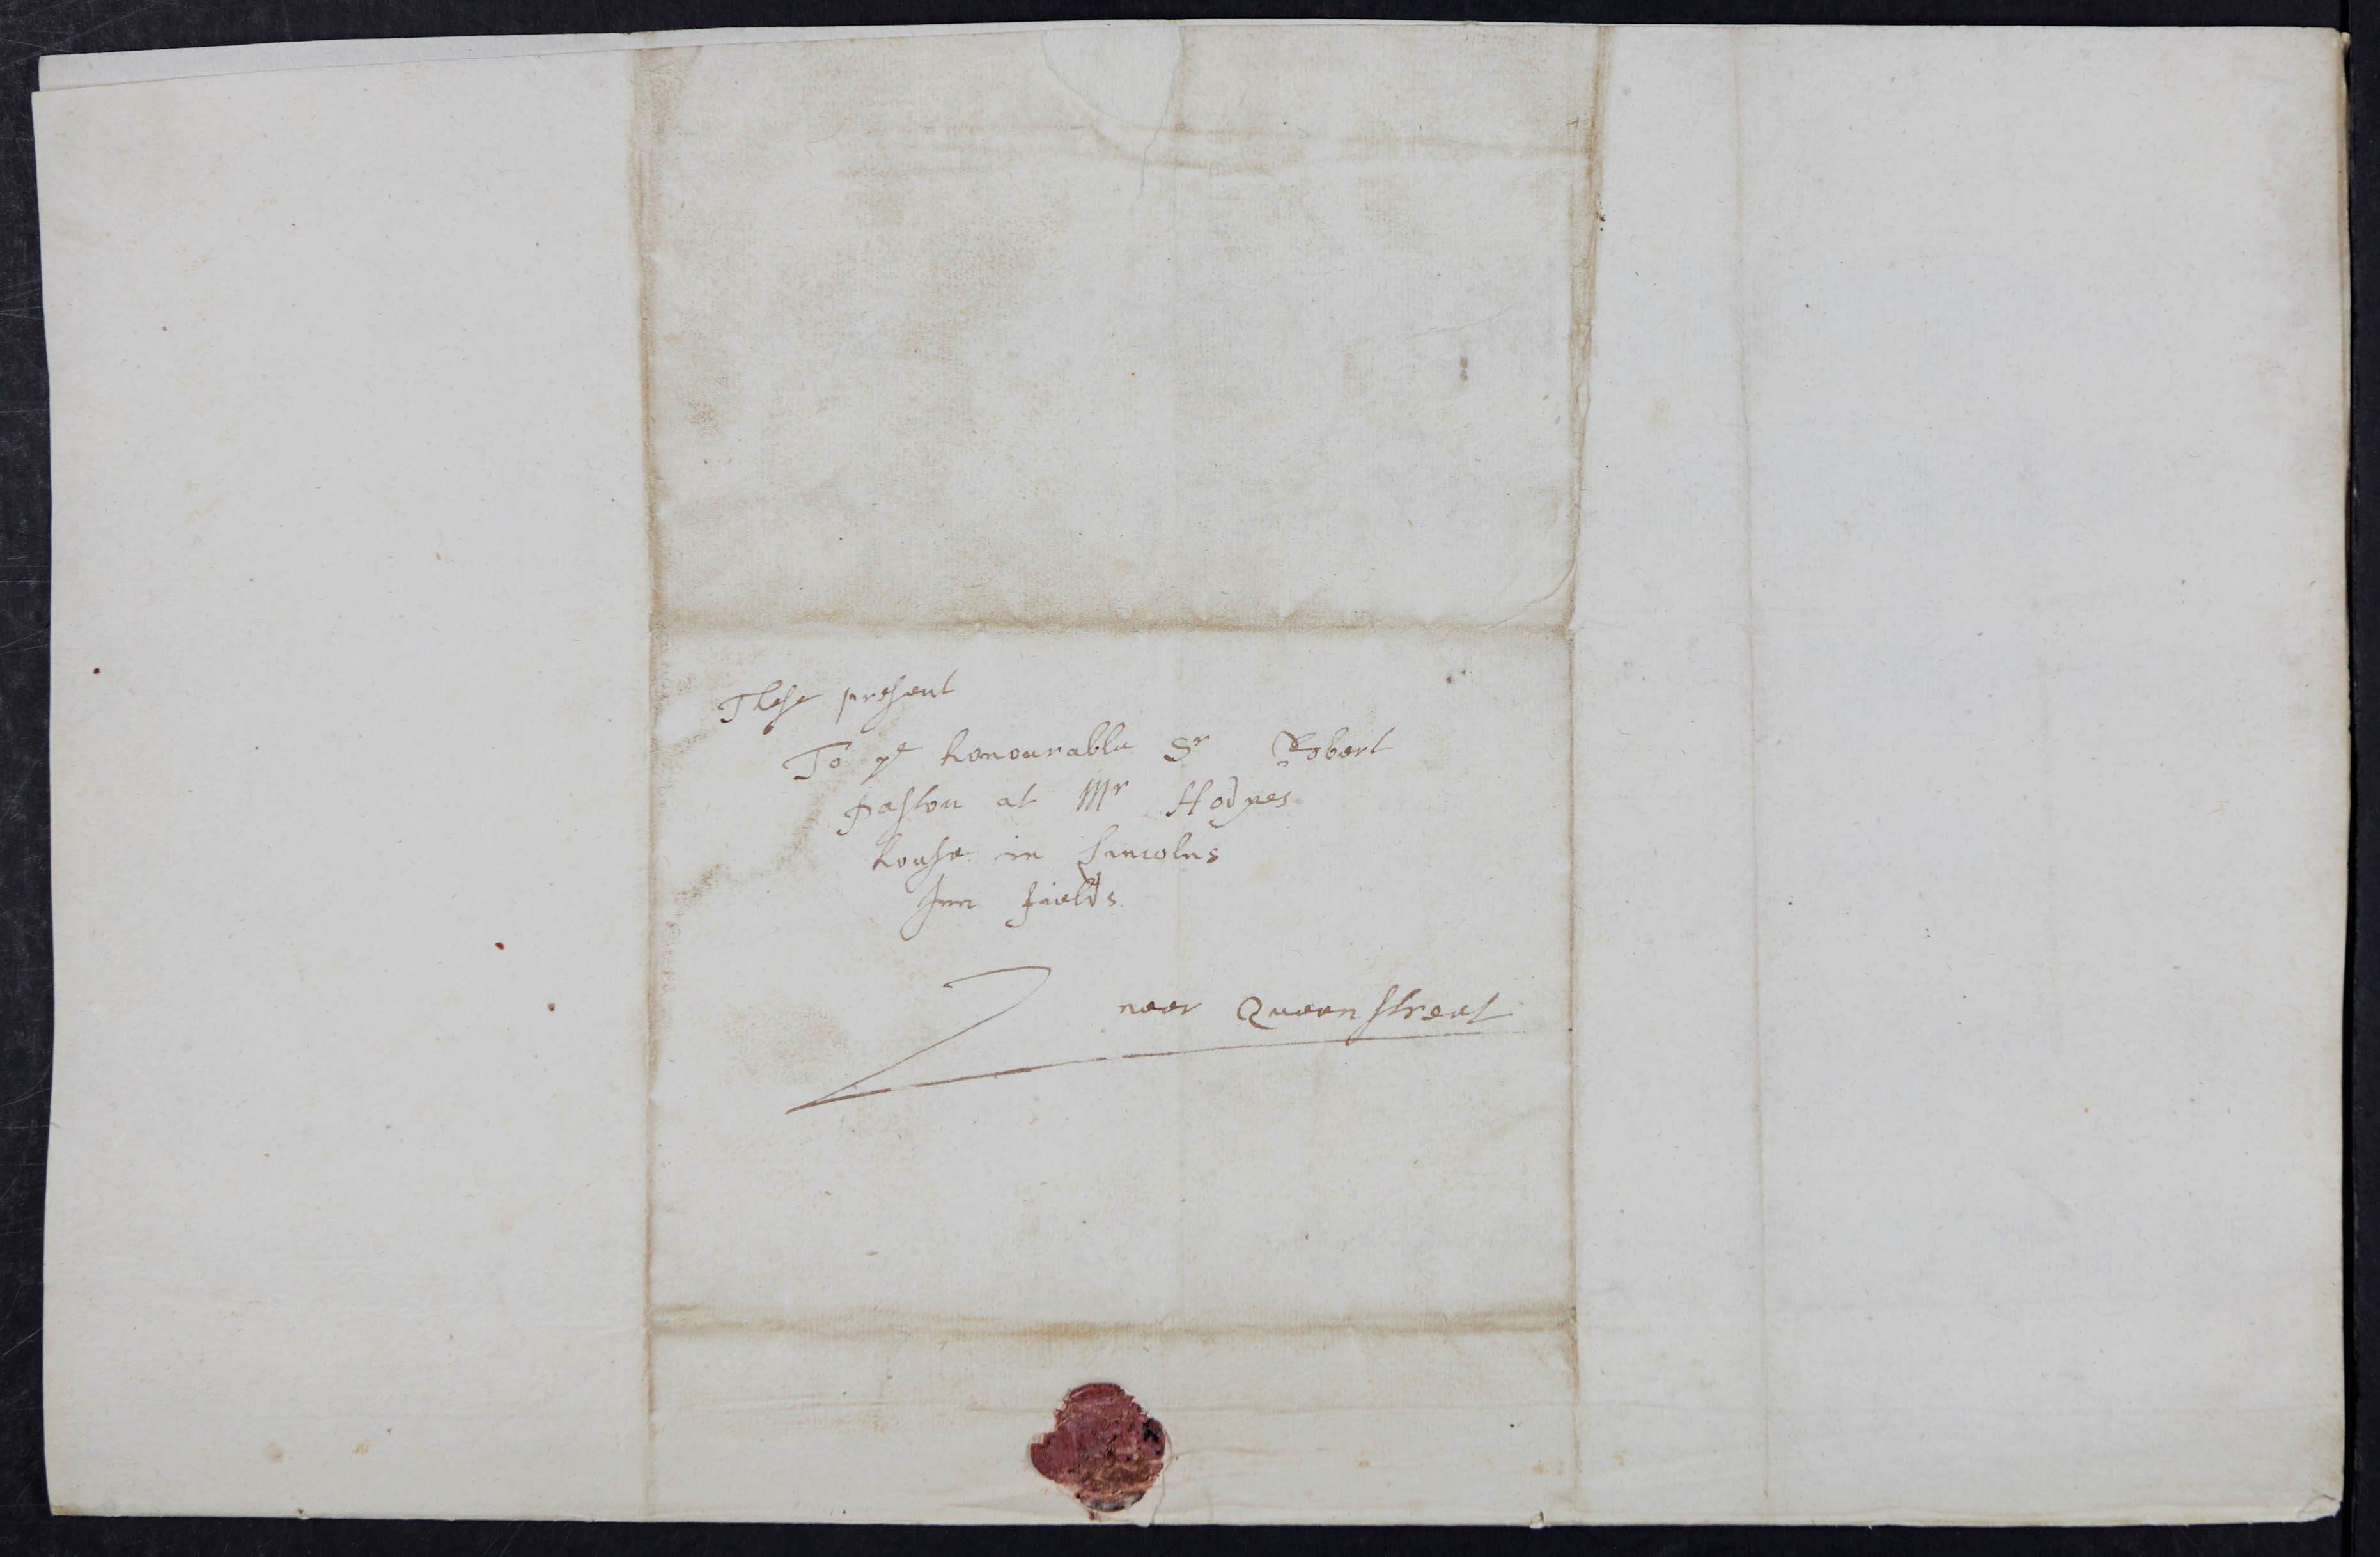 These present
To ye honourable Sr Robert
Paston at Mr Hodges
house in Lincolns
Inn fields
neer Queenstreet